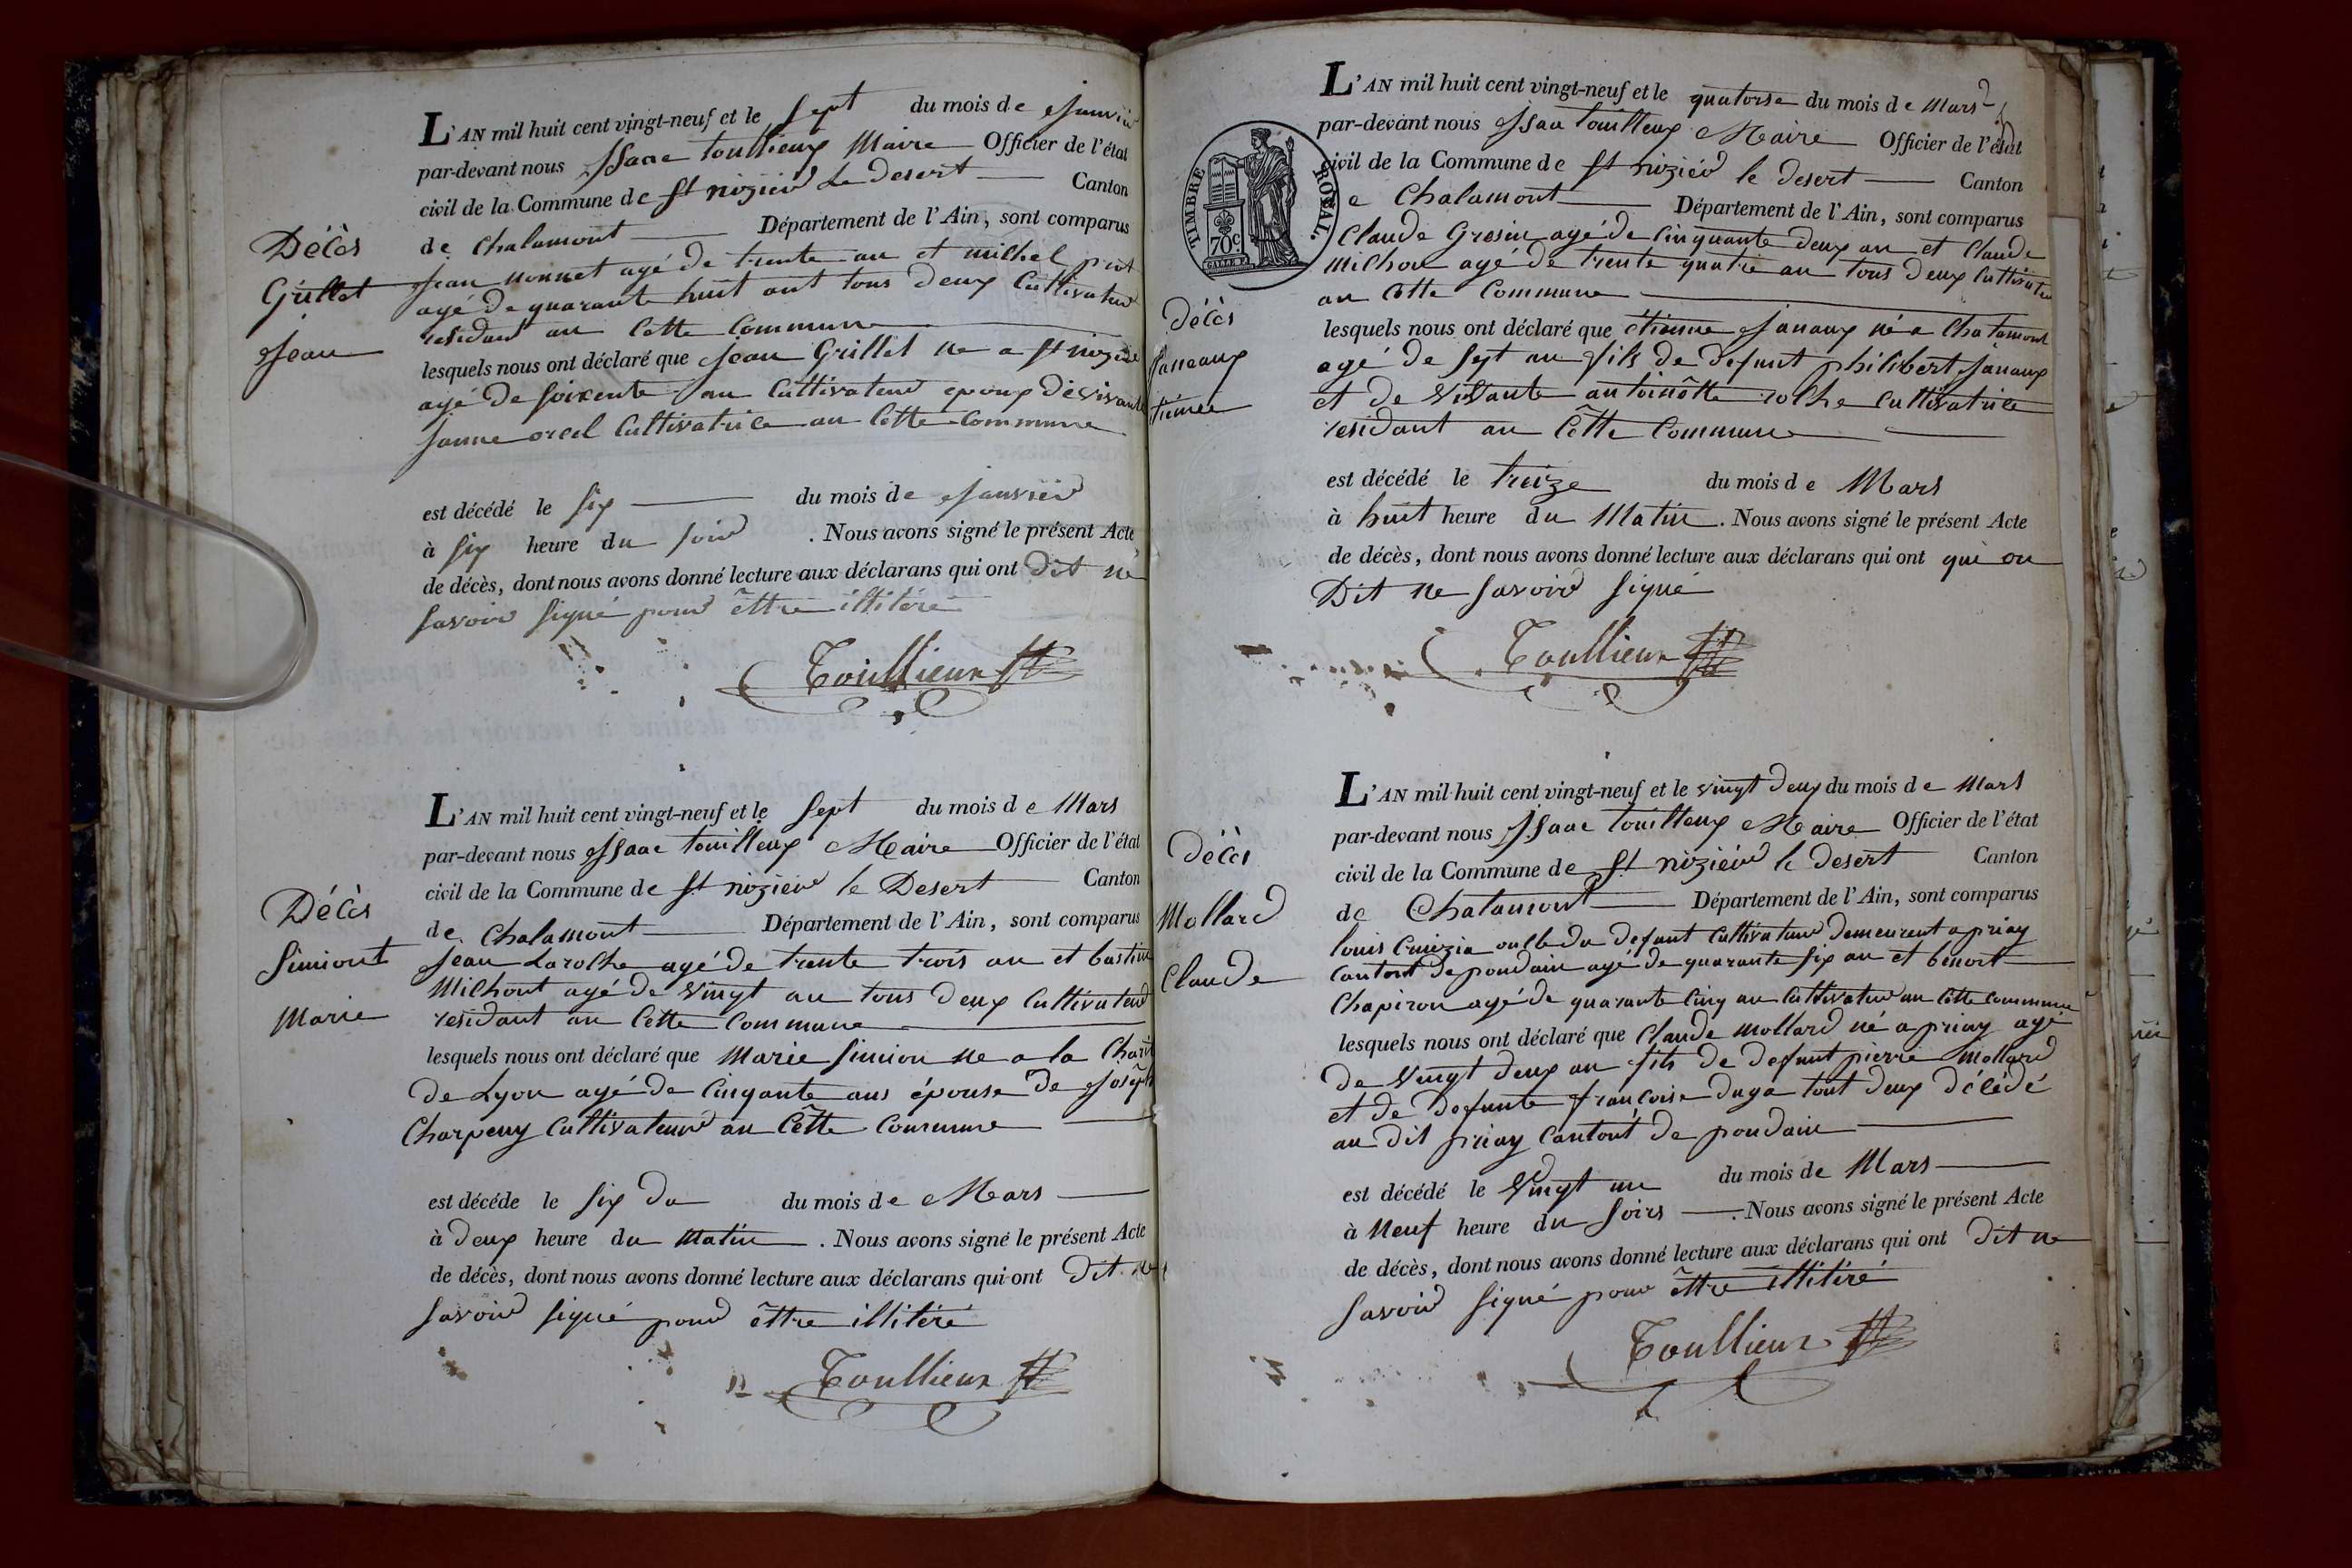 L'AN mil huit cent vingt-neuf et le sept du mois de janvier
par-devant nous Isaac toullieux Maire Officier de l'état
civil de la Commune de St niziéd Le desert Canton
de Chalamont Département de l'Ain, sont comparus
Décès
Grillet
jean
jean monnet agé de trente an et michel
agé de quarante huit ant tous deux Cultivateur
residant an Cette Commune
lesquels nous ont déclaré que jean Grillet ne a St nizier
agé de soixente an Cultivateur epoux de vivante
janne orcel Cultivatrice an Cette Commune
est décédé le six du mois de janvier
à six heure du soir . Nous avons signé le présent Acte
de décès, dont nous avons donné lecture aux déclarans qui ont Dit ne
savoir signé pour êttre illitéré
Toullieux
L'AN mil huit cent vingt-neuf et le sept du mois de Mars
par-devant nous Isaac touilleux Maire Officier de l'état
civil de la Commune de St nizier le Desert Canton
de Chalamont Département de l'Ain, sont comparus
Décès
Simiont
Marie
jean Laroche agé de trente trois an et bastien
Michont agé de vingt an tous deux Cultivateur
residant an Cette Commune
lesquels nous ont déclaré que Marie Simion ne a la Charit
de Lyon agé de Cinqante ans épouse de joseph
Charpeny Cultivateur an Cêtte Commune
est décéde le six du du mois de Mars
à deux heure du Matin . Nous avons signé le présent Acte
de décès, dont nous avons donné lecture aux déclarans qui ont Dit ne
savoir signé pour êttre illitéré
Toullieux
TIMBRE ROYAL.
70c.
L'AN mil huit cent vingt-neuf et le quatorse du mois de Mars
par-devant nous Isaac touilleux Maire Officier de l'état
civil de la Commune de St niziér le desert Canton
e Chalamont Département de l'Ain, sont comparus
Claude Gresin agé de Cinquante deux an et Claude
Michon agé de trente quatre an tous deux Cultivateur
an Cette Commune
décès
janeaux
tienne
lesquels nous ont déclaré que étienne janaux né a Chalamont
agé de sept an fils de defunt philibert janaux
et de vivante antoinêtte roche Cultivatrice
residant an Cêtte Commune
est décédé le treize du mois de Mars
à huit heure du Matin . Nous avons signé le présent Acte
de décès, dont nous avons donné lecture aux déclarans qui ont qui on
Dit ne savoir signé
Toullieux
L'AN mil huit cent vingt-neuf et le vingt deux du mois de Mars
par-devant nous Isaac touilleux Maire Officier de l'état
civil de la Commune de St niziér le desert Canton
de Chalamont Département de l'Ain, sont comparus
Décès
Mollard
Claude
louis Cruizia du defunt Cultivateur demeurent a priay
Cantont de pondain agé de quarante six an et benoit
Chapiron agé de quarante Cinq an Cultivateur an Cette Commune
lesquels nous ont déclaré que Claude Mollard né a priay agé
de vingt deux an fils de defunt pierre Mollard
et de defunte françoise duga tout deux décédé
au dit priay Cantont de pondain
est décédé le vingt un du mois de Mars
à Neuf heure du soirs . Nous avons signé le présent Acte
de décès, dont nous avons donné lecture aux déclarans qui ont Dit ne
savoir signé pour êttre illitéré
Toullieux